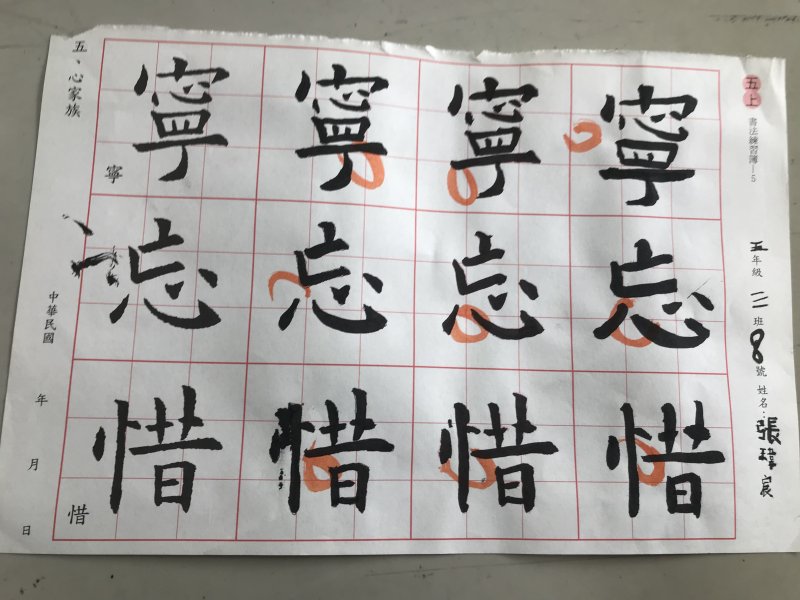 五上
書法練習簿—5
五年級三班8號姓名：張瑋宸
寧寧寧寧
忘忘忘忘
惜惜惜惜
五、心家族
寧
惜
中華民國 年 月 日